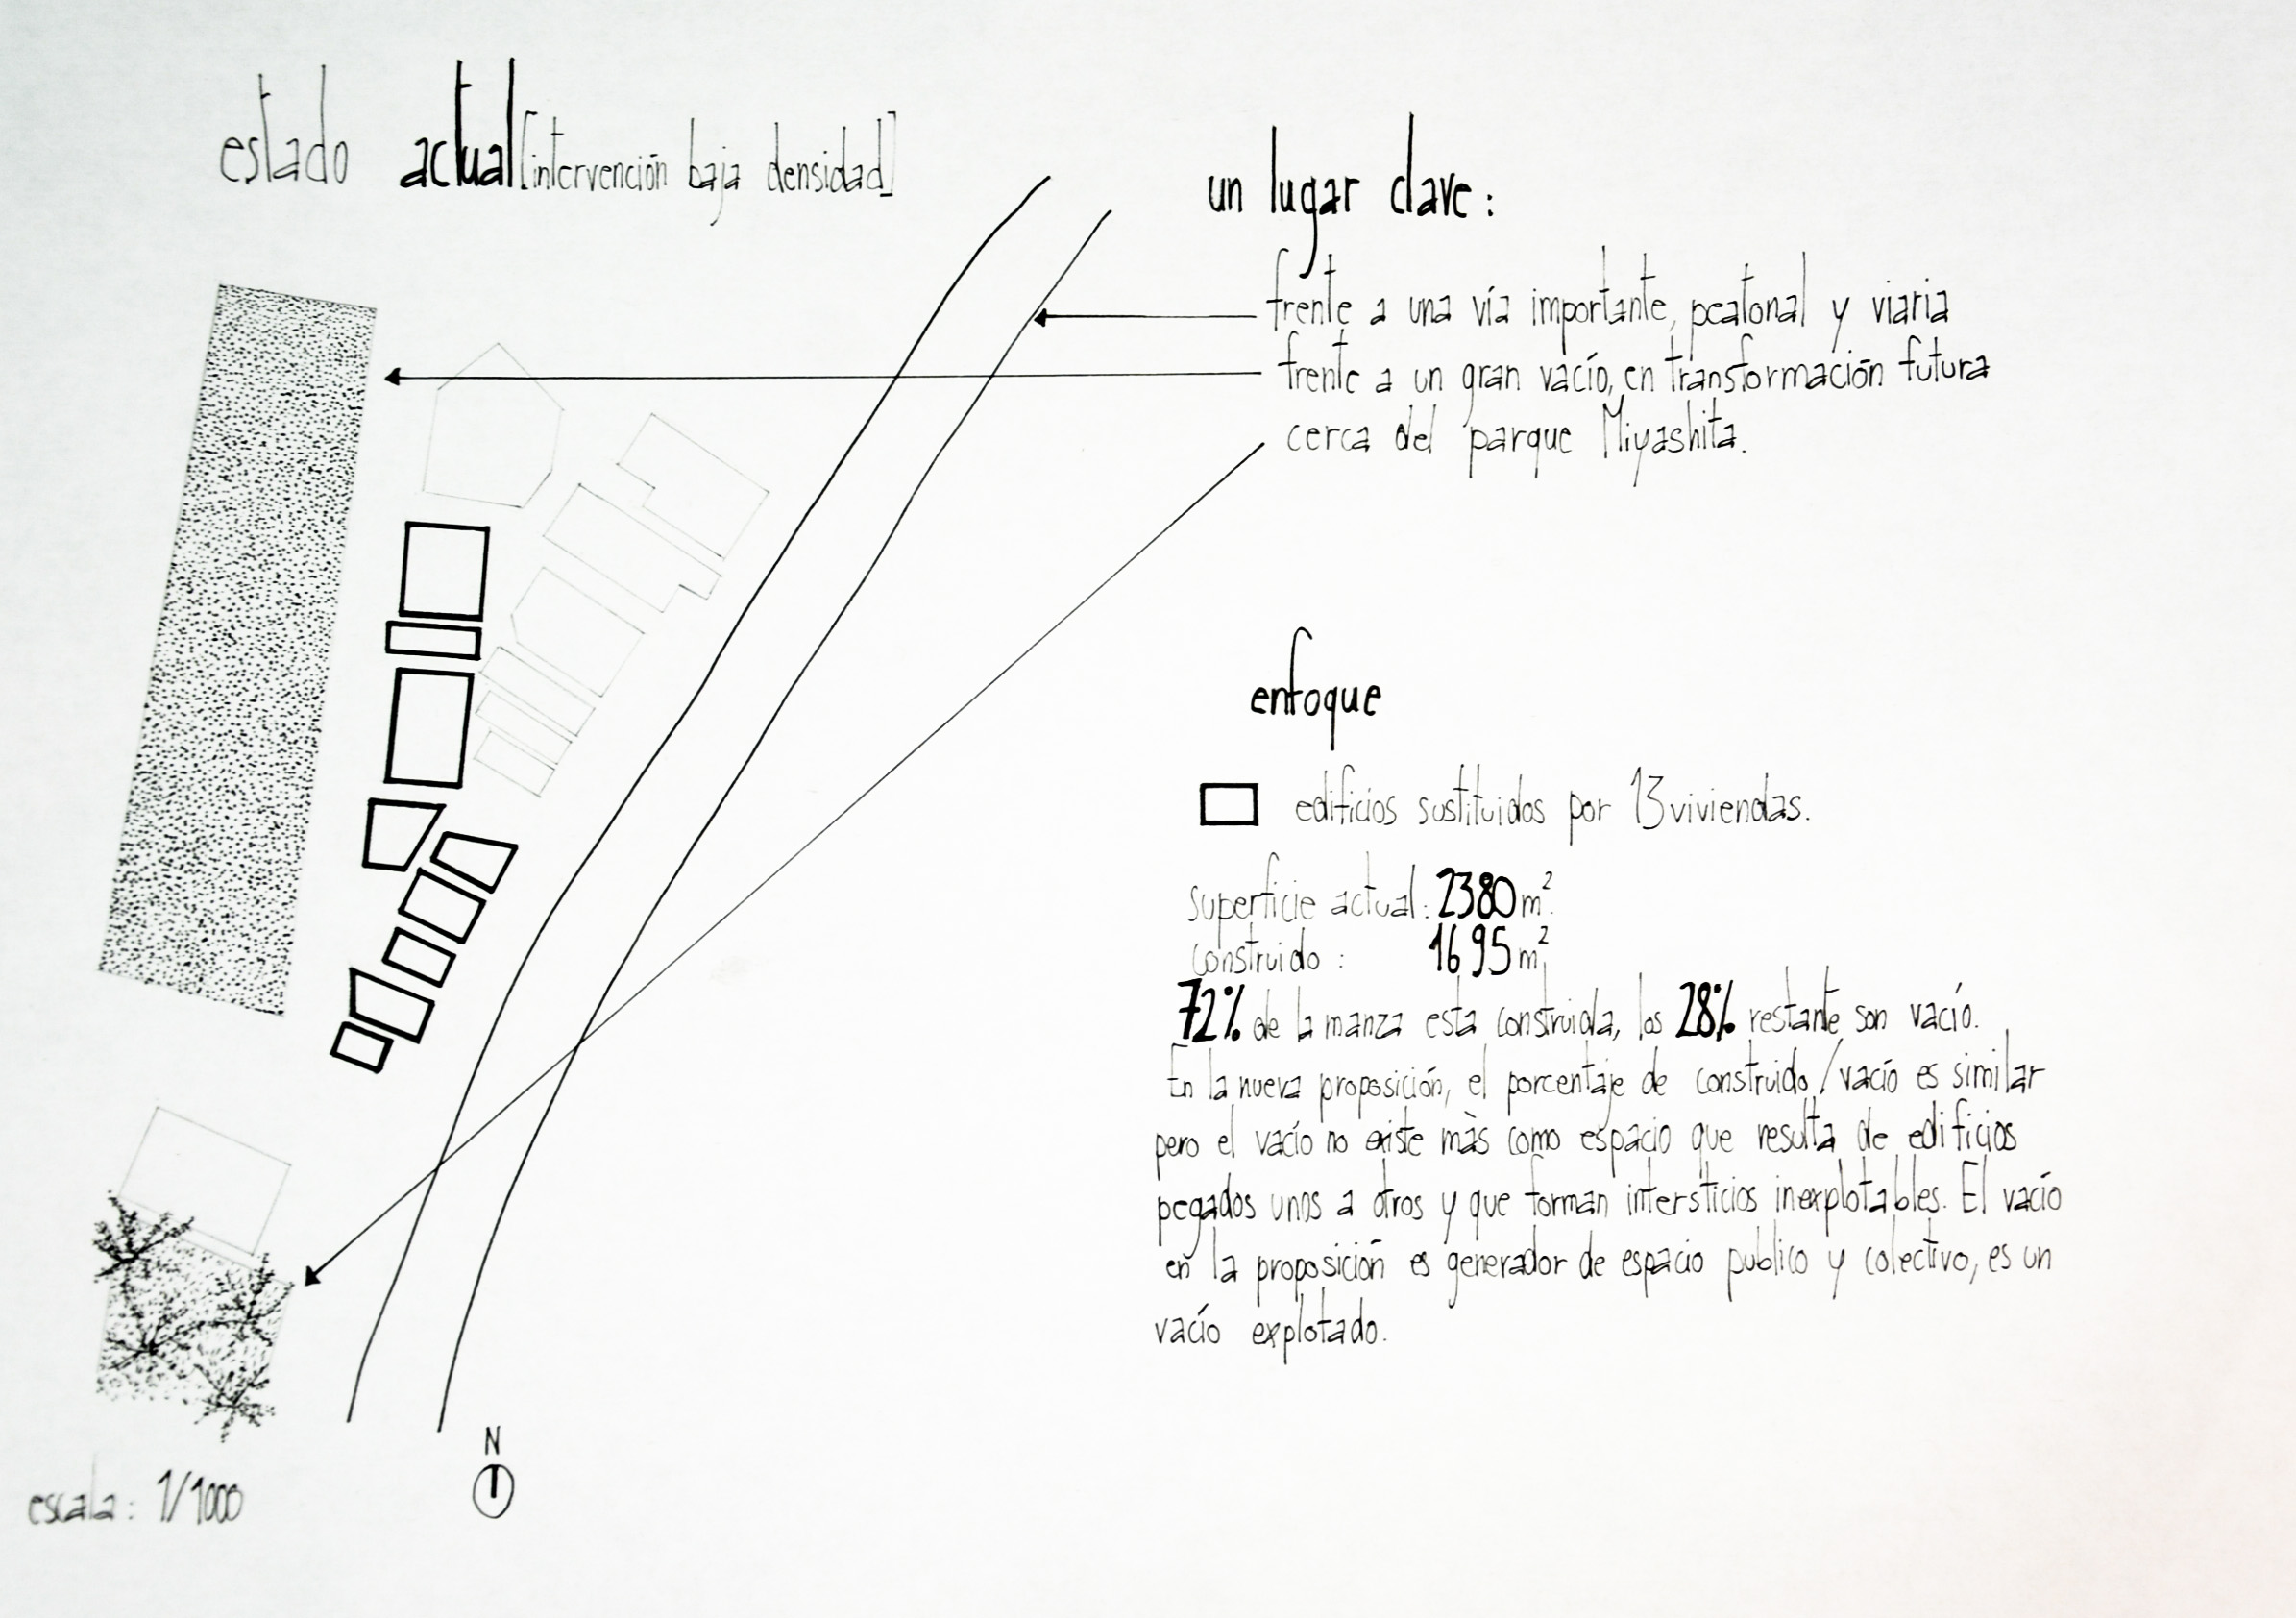 estado actual [intervención baja densidad]
un lugar clave:
frente a una vía importante, peatonal y viaria
frente a un gran vacío, en transformación futura
cerca del parque Miyashita.
enfoque
edificios sustituidos por 13 viviendas.
superficie actual: 2380 m².
construido: 1695 m².
72% de la manza esta construida, los 28% restante son vacío.
En la nueva proposición, el porcentaje de construido/vacío es similar
pero el vacío no existe màs como espacio que resulta de edificios
pegados unos a otros y que forman intersticios inexplotables. El vacío
en la proposición es generador de espacio publico y colectivo, es un
vacío explotado.
N
escala: 1/1000